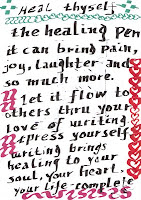 Heal thyself
the healing pen
it can bring pain,
joy, laughter and
so much more.
let it flow to
others thru your
love of writing
Express yourself
writing brings
healing to your
soul, your heart,
your life-complete